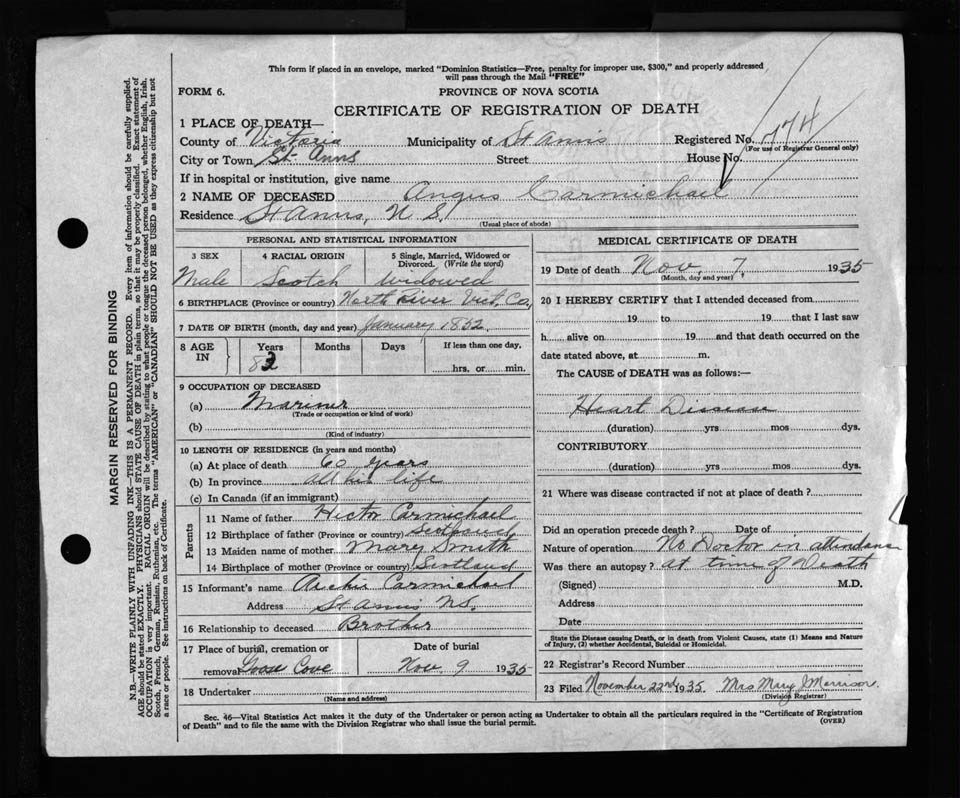 This form if placed in an envelope, marked "Dominion Statistics—Free, penalty for improper use, $300," and properly addressed
will pass through the Mail "FREE"
FORM 6.
PROVINCE OF NOVA SCOTIA
CERTIFICATE OF REGISTRATION OF DEATH
1 PLACE OF DEATH—
County of Victoria Municipality of St Anns Registered No. 774
(For use of Registrar General only)
City or Town St Anns Street House No.
If in hospital or institution, give name
2 NAME OF DECEASED Angus Carmichael
Residence St Anns, N. S.
(Usual place of abode)
PERSONAL AND STATISTICAL INFORMATION
3 SEX 4 RACIAL ORIGIN 5 Single, Married, Widowed or
Divorced. (Write the word)
Male Scotch Widowed
6 BIRTHPLACE (Province or country) North River Vict. Co,
7 DATE OF BIRTH (month, day and year) January 1852
8 AGE IN Years Months Days If less than one day,
83 hrs. or min.
9 OCCUPATION OF DECEASED
(a) Mariner
(Trade or occupation or kind of work)
(b)
(Kind of industry)
10 LENGTH OF RESIDENCE (in years and months)
(a) At place of death 60 years
(b) In province All his life
(c) In Canada (if an immigrant)
Parents
11 Name of father Hector Carmichael
12 Birthplace of father (Province or country) Scotland
13 Maiden name of mother Mary Smith
14 Birthplace of mother (Province or country) Scotland
15 Informant's name Archie Carmichael
Address St Anns N.S.
16 Relationship to deceased Brother
17 Place of burial, cremation or Date of burial
removal Goose Cove Nov. 9 1935
18 Undertaker
(Name and address)
MEDICAL CERTIFICATE OF DEATH
19 Date of death Nov, 7, 1935
(Month, day and year)
20 I HEREBY CERTIFY that I attended deceased from
19 to 19 that I last saw
h alive on 19 and that death occurred on the
date stated above, at m.
The CAUSE of DEATH was as follows:—
Heart Disease
(duration) yrs mos dys.
CONTRIBUTORY
(duration) yrs mos dys.
21 Where was disease contracted if not at place of death?
Did an operation precede death? Date of
Nature of operation No Doctor in attendance
Was there an autopsy? at time of Death
(Signed) M.D.
Address
Date
State the Disease causing Death, or in death from Violent Causes, state (1) Means and Nature
of Injury, (2) whether Accidental, Suicidal or Homicidal.
22 Registrar's Record Number
23 Filed November 22nd 1935 Mrs Mary J Morrison.
(Division Registrar)
Sec. 46—Vital Statistics Act makes it the duty of the Undertaker or person acting as Undertaker to obtain all the particulars required in the "Certificate of Registration
of Death" and to file the same with the Division Registrar who shall issue the burial permit.
(OVER)
MARGIN RESERVED FOR BINDING
N.B.—WRITE PLAINLY WITH UNFADING INK—THIS IS A PERMANENT RECORD. Every item of information should be carefully supplied.
AGE should be stated EXACTLY. PHYSICIANS should STATE CAUSE OF DEATH in plain terms, so that it may be properly classified. Exact statement of
OCCUPATION is very important. RACIAL ORIGIN will be described by stating to what people or tongue the deceased person belonged, whether English, Irish,
Scotch, French, German, Russian, Ruthenian, etc. The terms "AMERICAN" or "CANADIAN" SHOULD NOT BE USED as they express citizenship but not
a race or people. See instructions on back of Certificate.